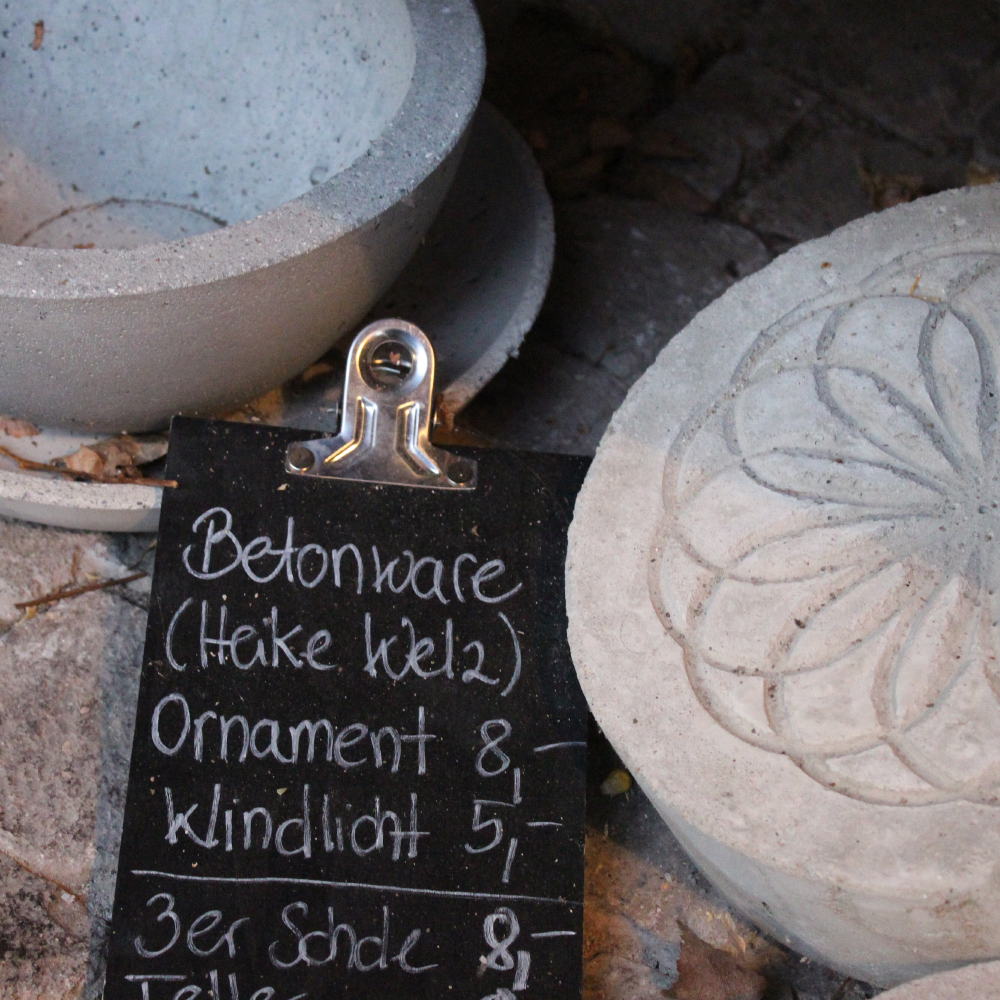 Betonware
(Heike Welz)
Ornament 8,-
Windlicht 5,-
3er Schale 8,-
Teller